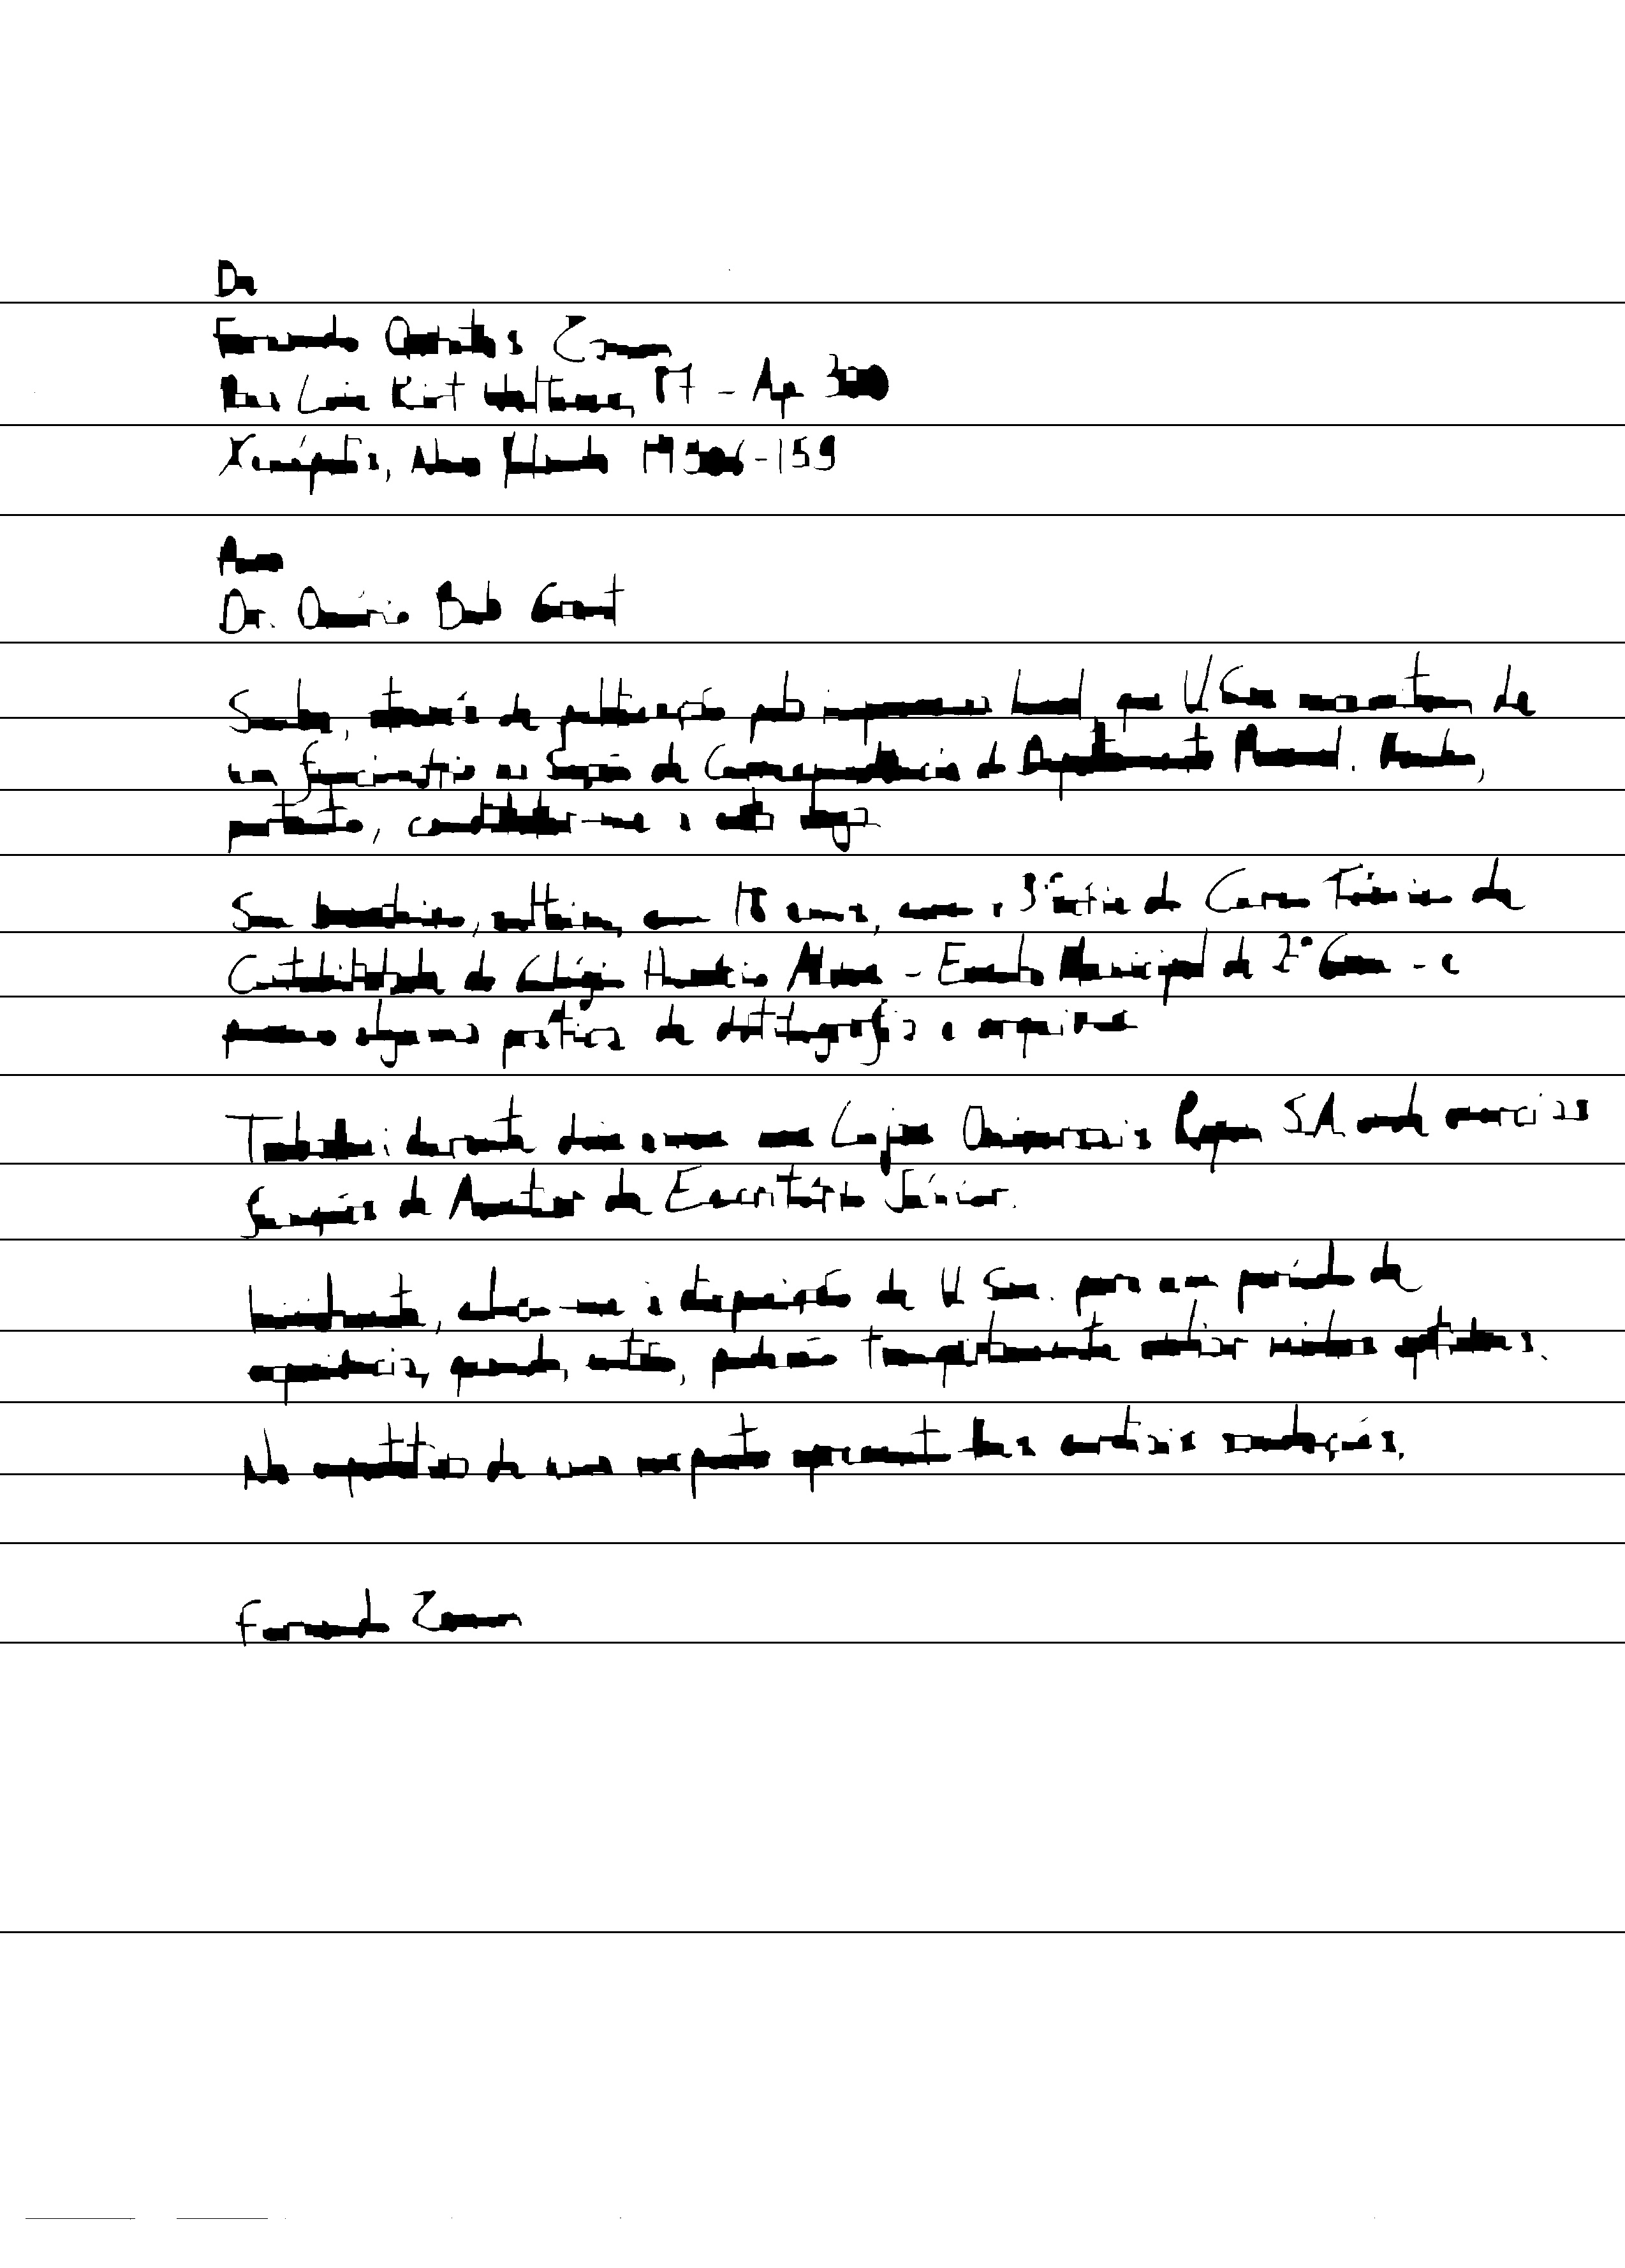 De
Fernando Quintas Zaman
Rua Luis Kurt Walthaus, 87 - Ap 300
Xenópolis, Nova 19506-159
Ao
Dr. Onório Grant
Soube, através de publicação pela imprensa local, que V Sa necessitam de
um funcionário na Seção de Correspondência do Departamento Pessoal. Venho,
portanto, candidatar-me a esta vaga
Sou brasileiro, solteiro, com 18 anos, curso a 3ª série do Curso Técnico de
Contabilidade do Colégio Horácio - Escola Municipal de 2º Grau - e
possuo algumas práticas de datilografia e arquivos
Trabalhei durante dois anos nas Lojas S.A onde exerci as
funções de Auxiliar de Escritório Júnior.
, coloco-me à disposição de V Sas. para um período de
experiência, quando, então, poderão avaliar minhas aptidões.
Na expectativa de uma resposta apresento-lhes cordiais saudações.
Fernando Zaman